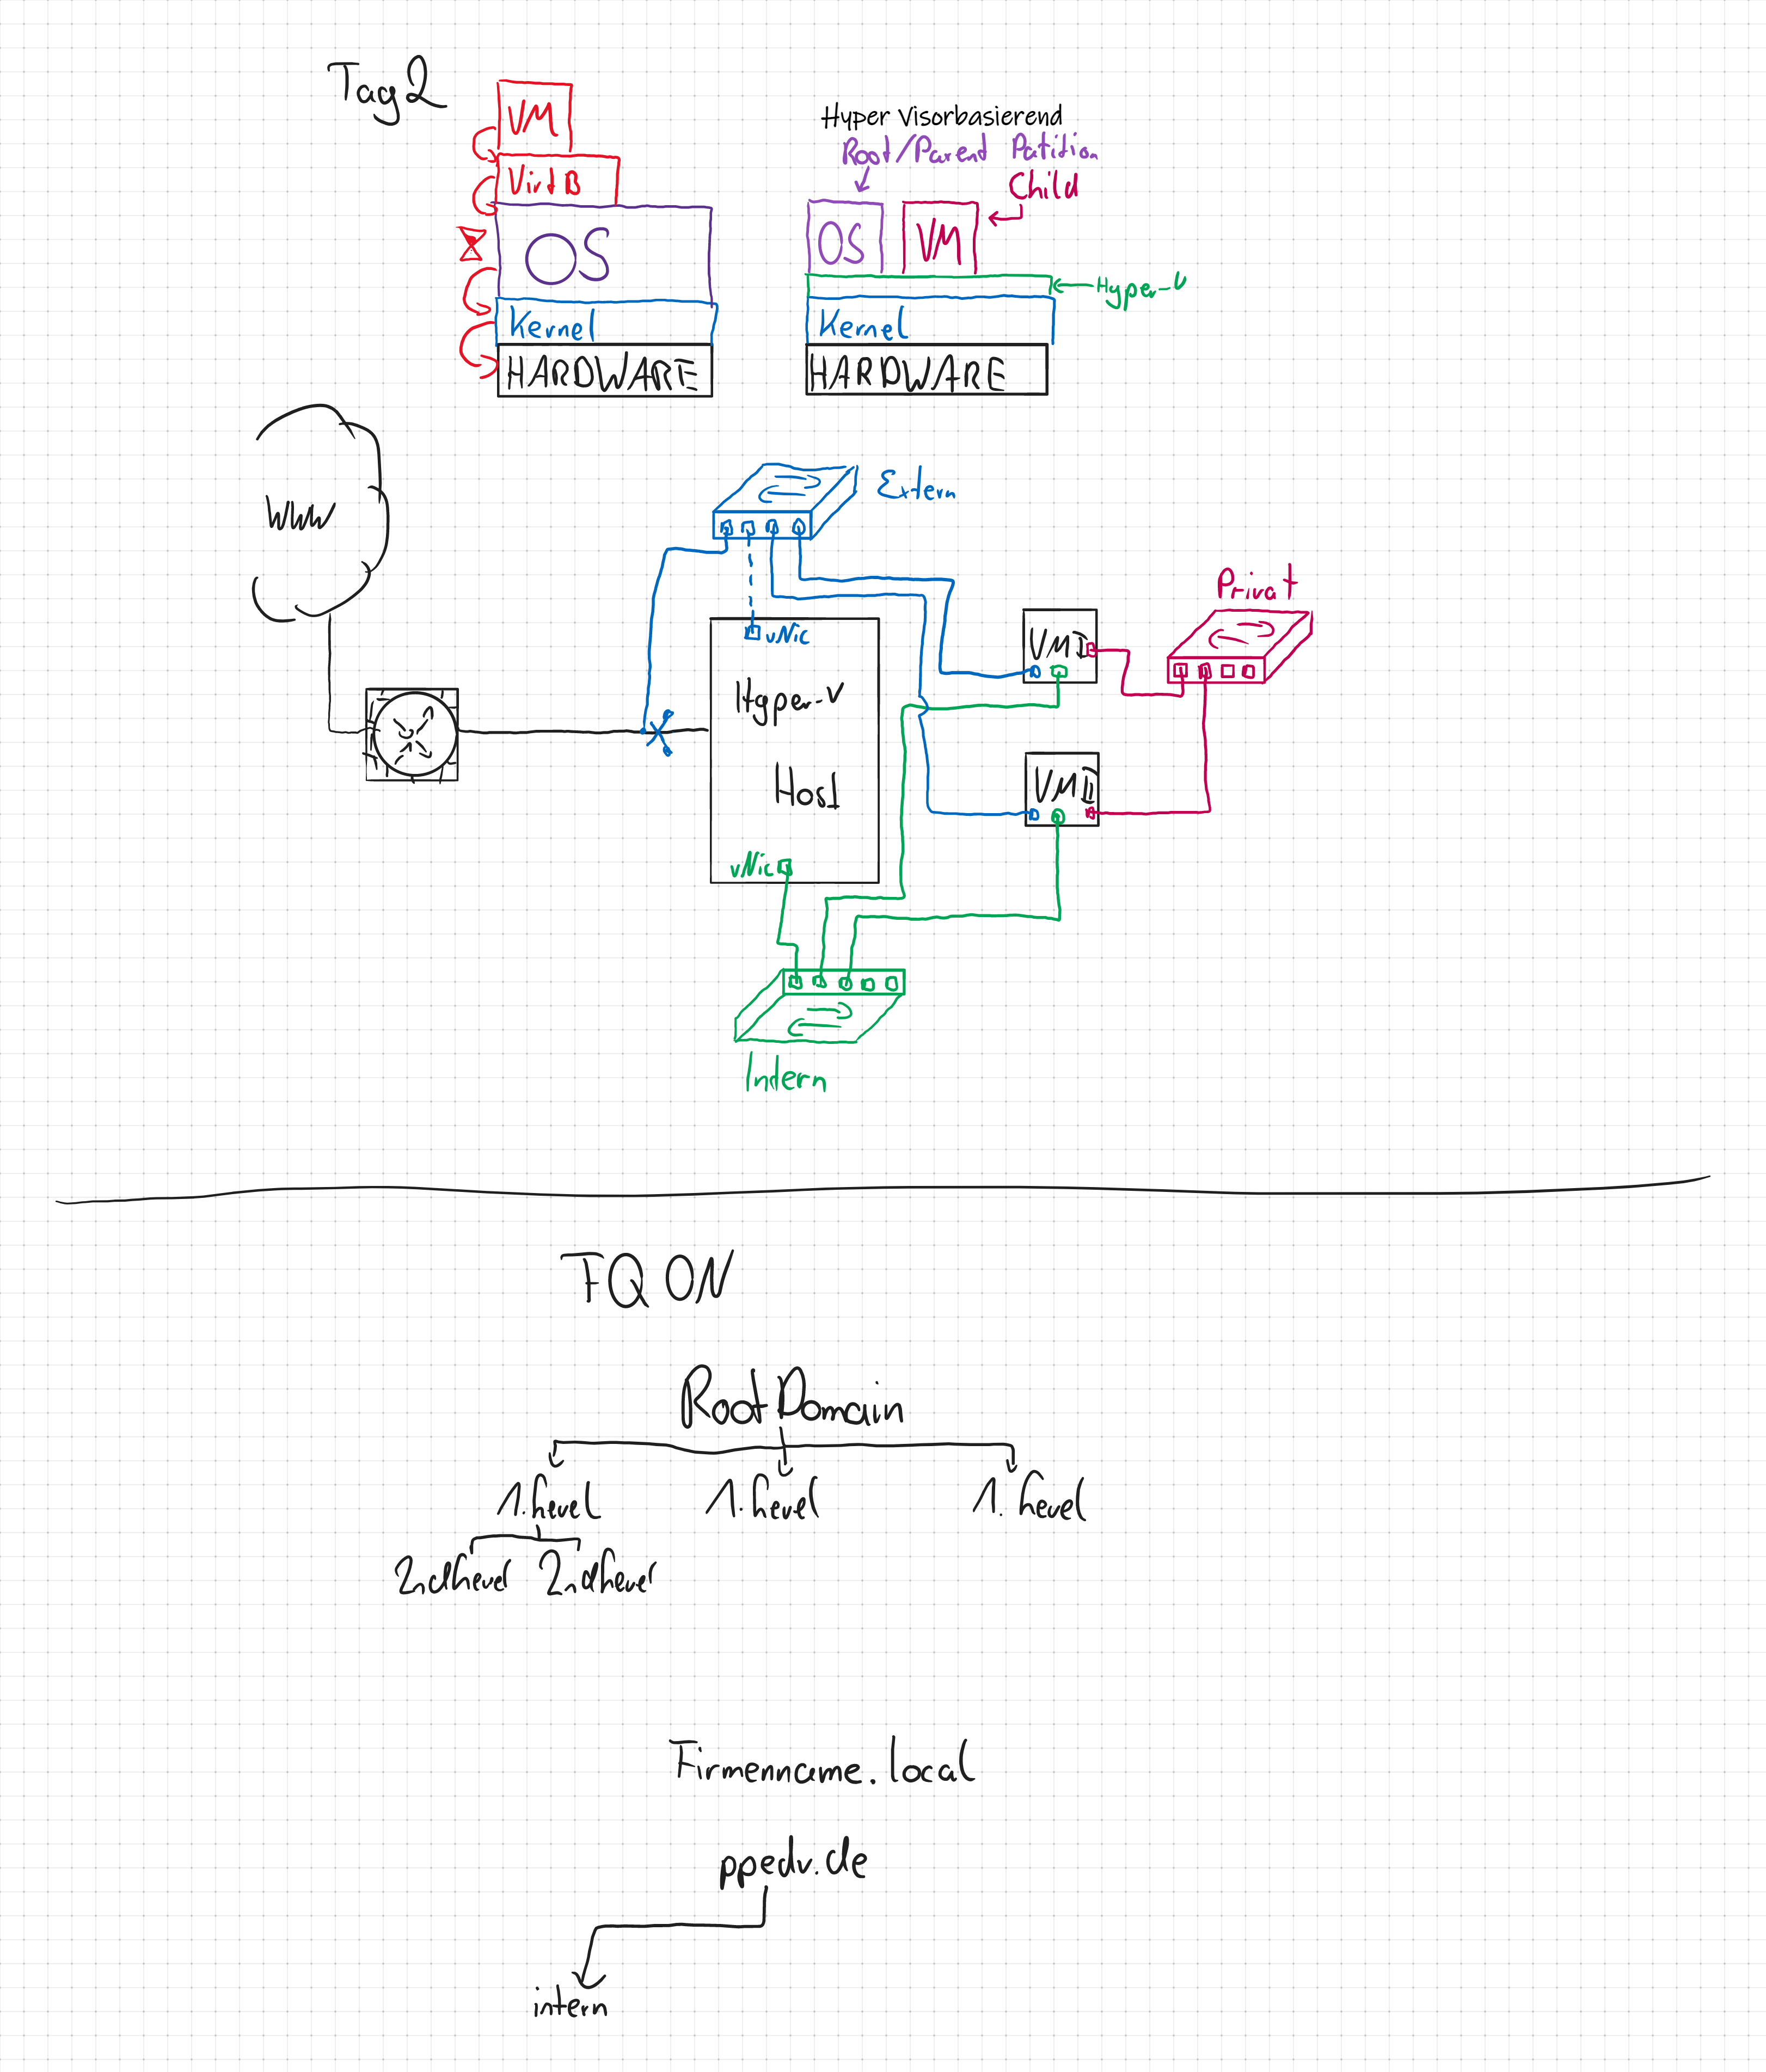 Tag 2
VM
Virt B
OS
Kernel
HARDWARE
Hyper Visorbasierend
Root/Parent Patition
Child
OS
VM
Hyper-V
Kernel
HARDWARE
WWW
Extern
vNic
Hyper-V
Host
vNic
VM I
VM II
Privat
Intern
FQDN
Root Domain
1. Level
1. Level
1. Level
2nd Level
2nd Level
Firmenname.local
ppedv.de
intern